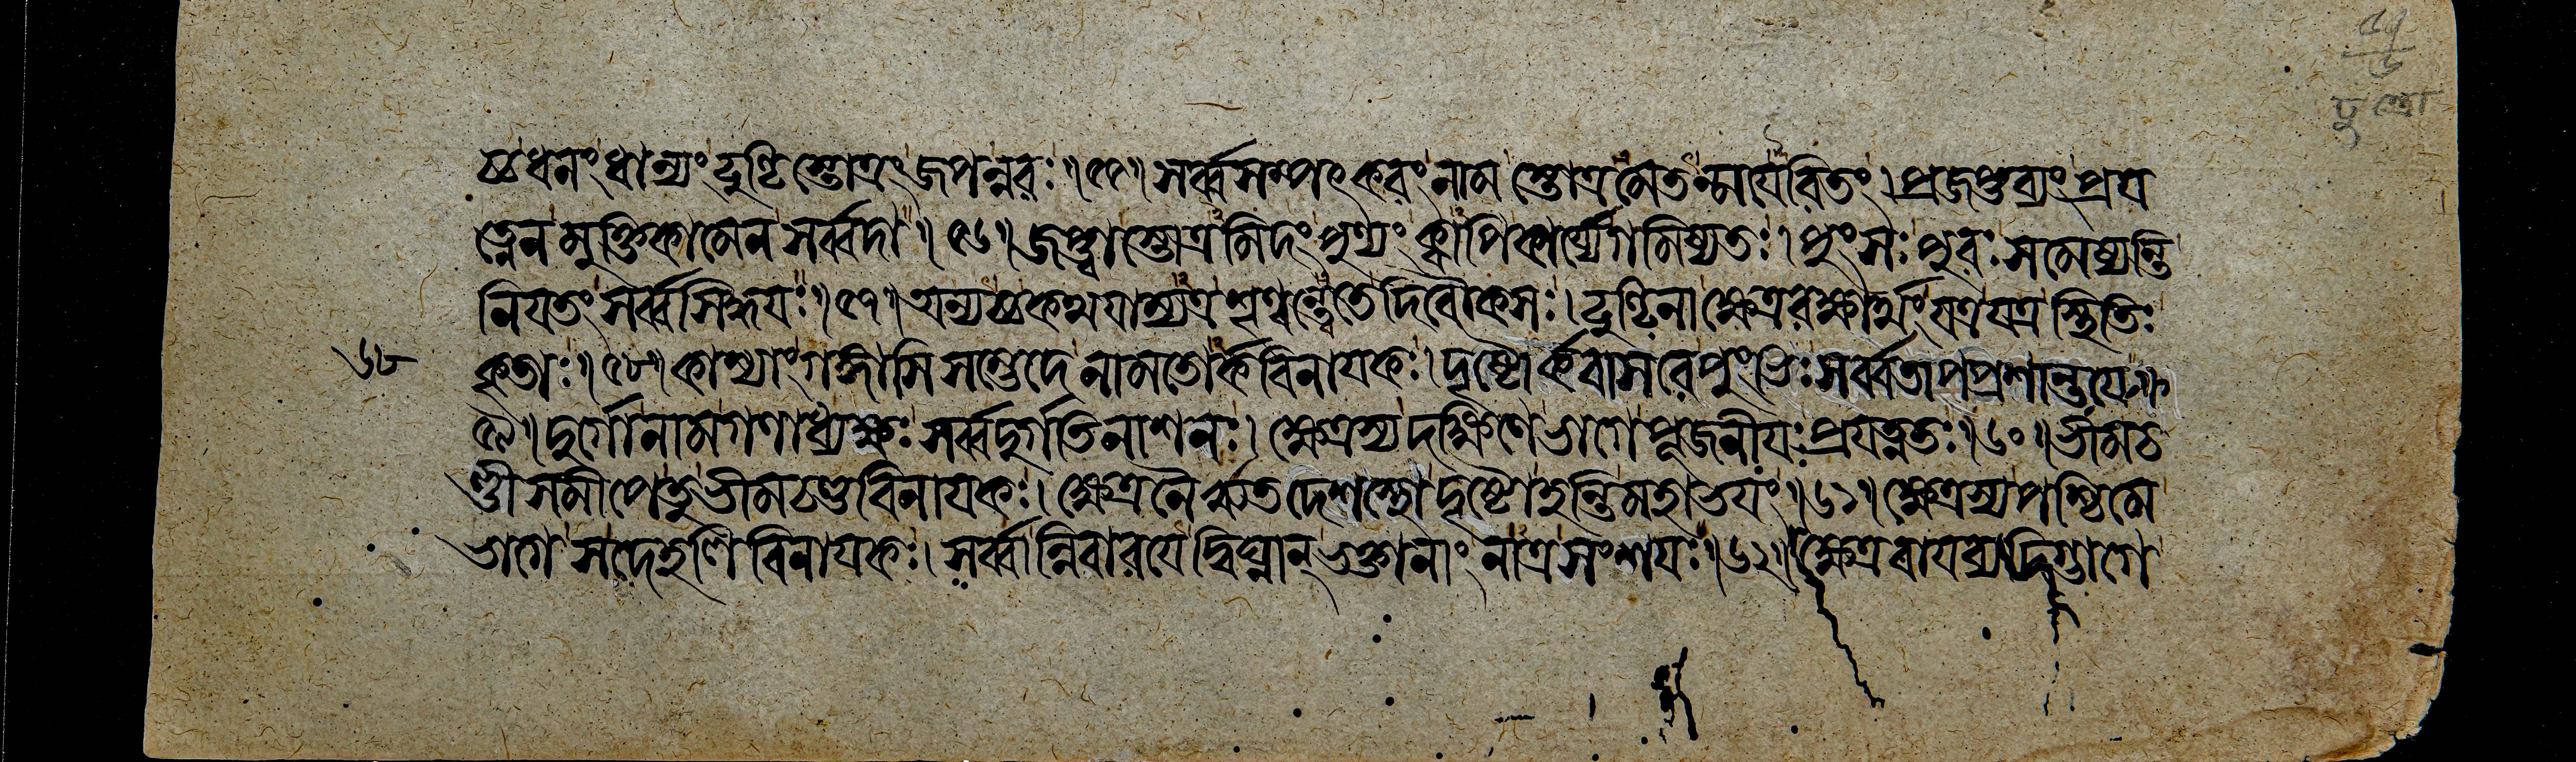 ঞ্চ ধনং ধান্যং ঢুণ্ঢিস্তোত্রং জপন্নরঃ ॥ ৫৫ ॥ সর্ব্বসম্পৎকরং নাম স্তোত্রমেতন্ময়েরিতং । প্রজপ্তব্যং প্রয
ত্নেন মুক্তিকামেন সর্ব্বদা ॥ ৫৬ ॥ জপ্ত্বা স্তোত্রমিদং পুণ্যং ক্বাপি কার্য্যে গমিষ্যতঃ । পুংসঃ পুরঃ সমেষ্যন্তি
নিয়তং সর্ব্বসিদ্ধয়ঃ ॥ ৫৭ ॥ অন্যচ্চ কথয়াম্যত্র শৃণ্বন্ত্বেতে দিবৌকসঃ । ঢুণ্ঢিনা ক্ষেত্ররক্ষার্থং যত্র যত্র স্থিতিঃ
কৃতাঃ ॥ ৫৮ ॥ কাশ্যাং গঙ্গাসিসম্ভেদে নামতোর্কবিনায়কঃ । দৃষ্টোর্কবাসরে পুংভিঃ সর্ব্বতাপপ্রশান্তয়ে ॥
৫৯ ॥ দুর্গোনাম গণাধ্যক্ষঃ সর্ব্বদুর্গতিনাশনঃ । ক্ষেত্রস্য দক্ষিণে ভাগে পূজনীয়ঃ প্রযত্নতঃ ॥ ৬০ ॥ ভীমচ
ণ্ডীসমীপে তু ভীমচণ্ডবিনায়কঃ । ক্ষেত্রনৈর্ঋতদেশস্থো দৃষ্টো হন্তি মহাভয়ং ॥ ৬১ ॥ ক্ষেত্রস্য পশ্চিমে
ভাগে স দেহলিবিনায়কঃ । সর্ব্বান্নিবারয়েদ্বিঘ্নান্ ভক্তানাং নাত্র সংশয়ঃ ॥ ৬২ ॥ ক্ষেত্রবায়ব্যদিগ্ভাগে
৬৮